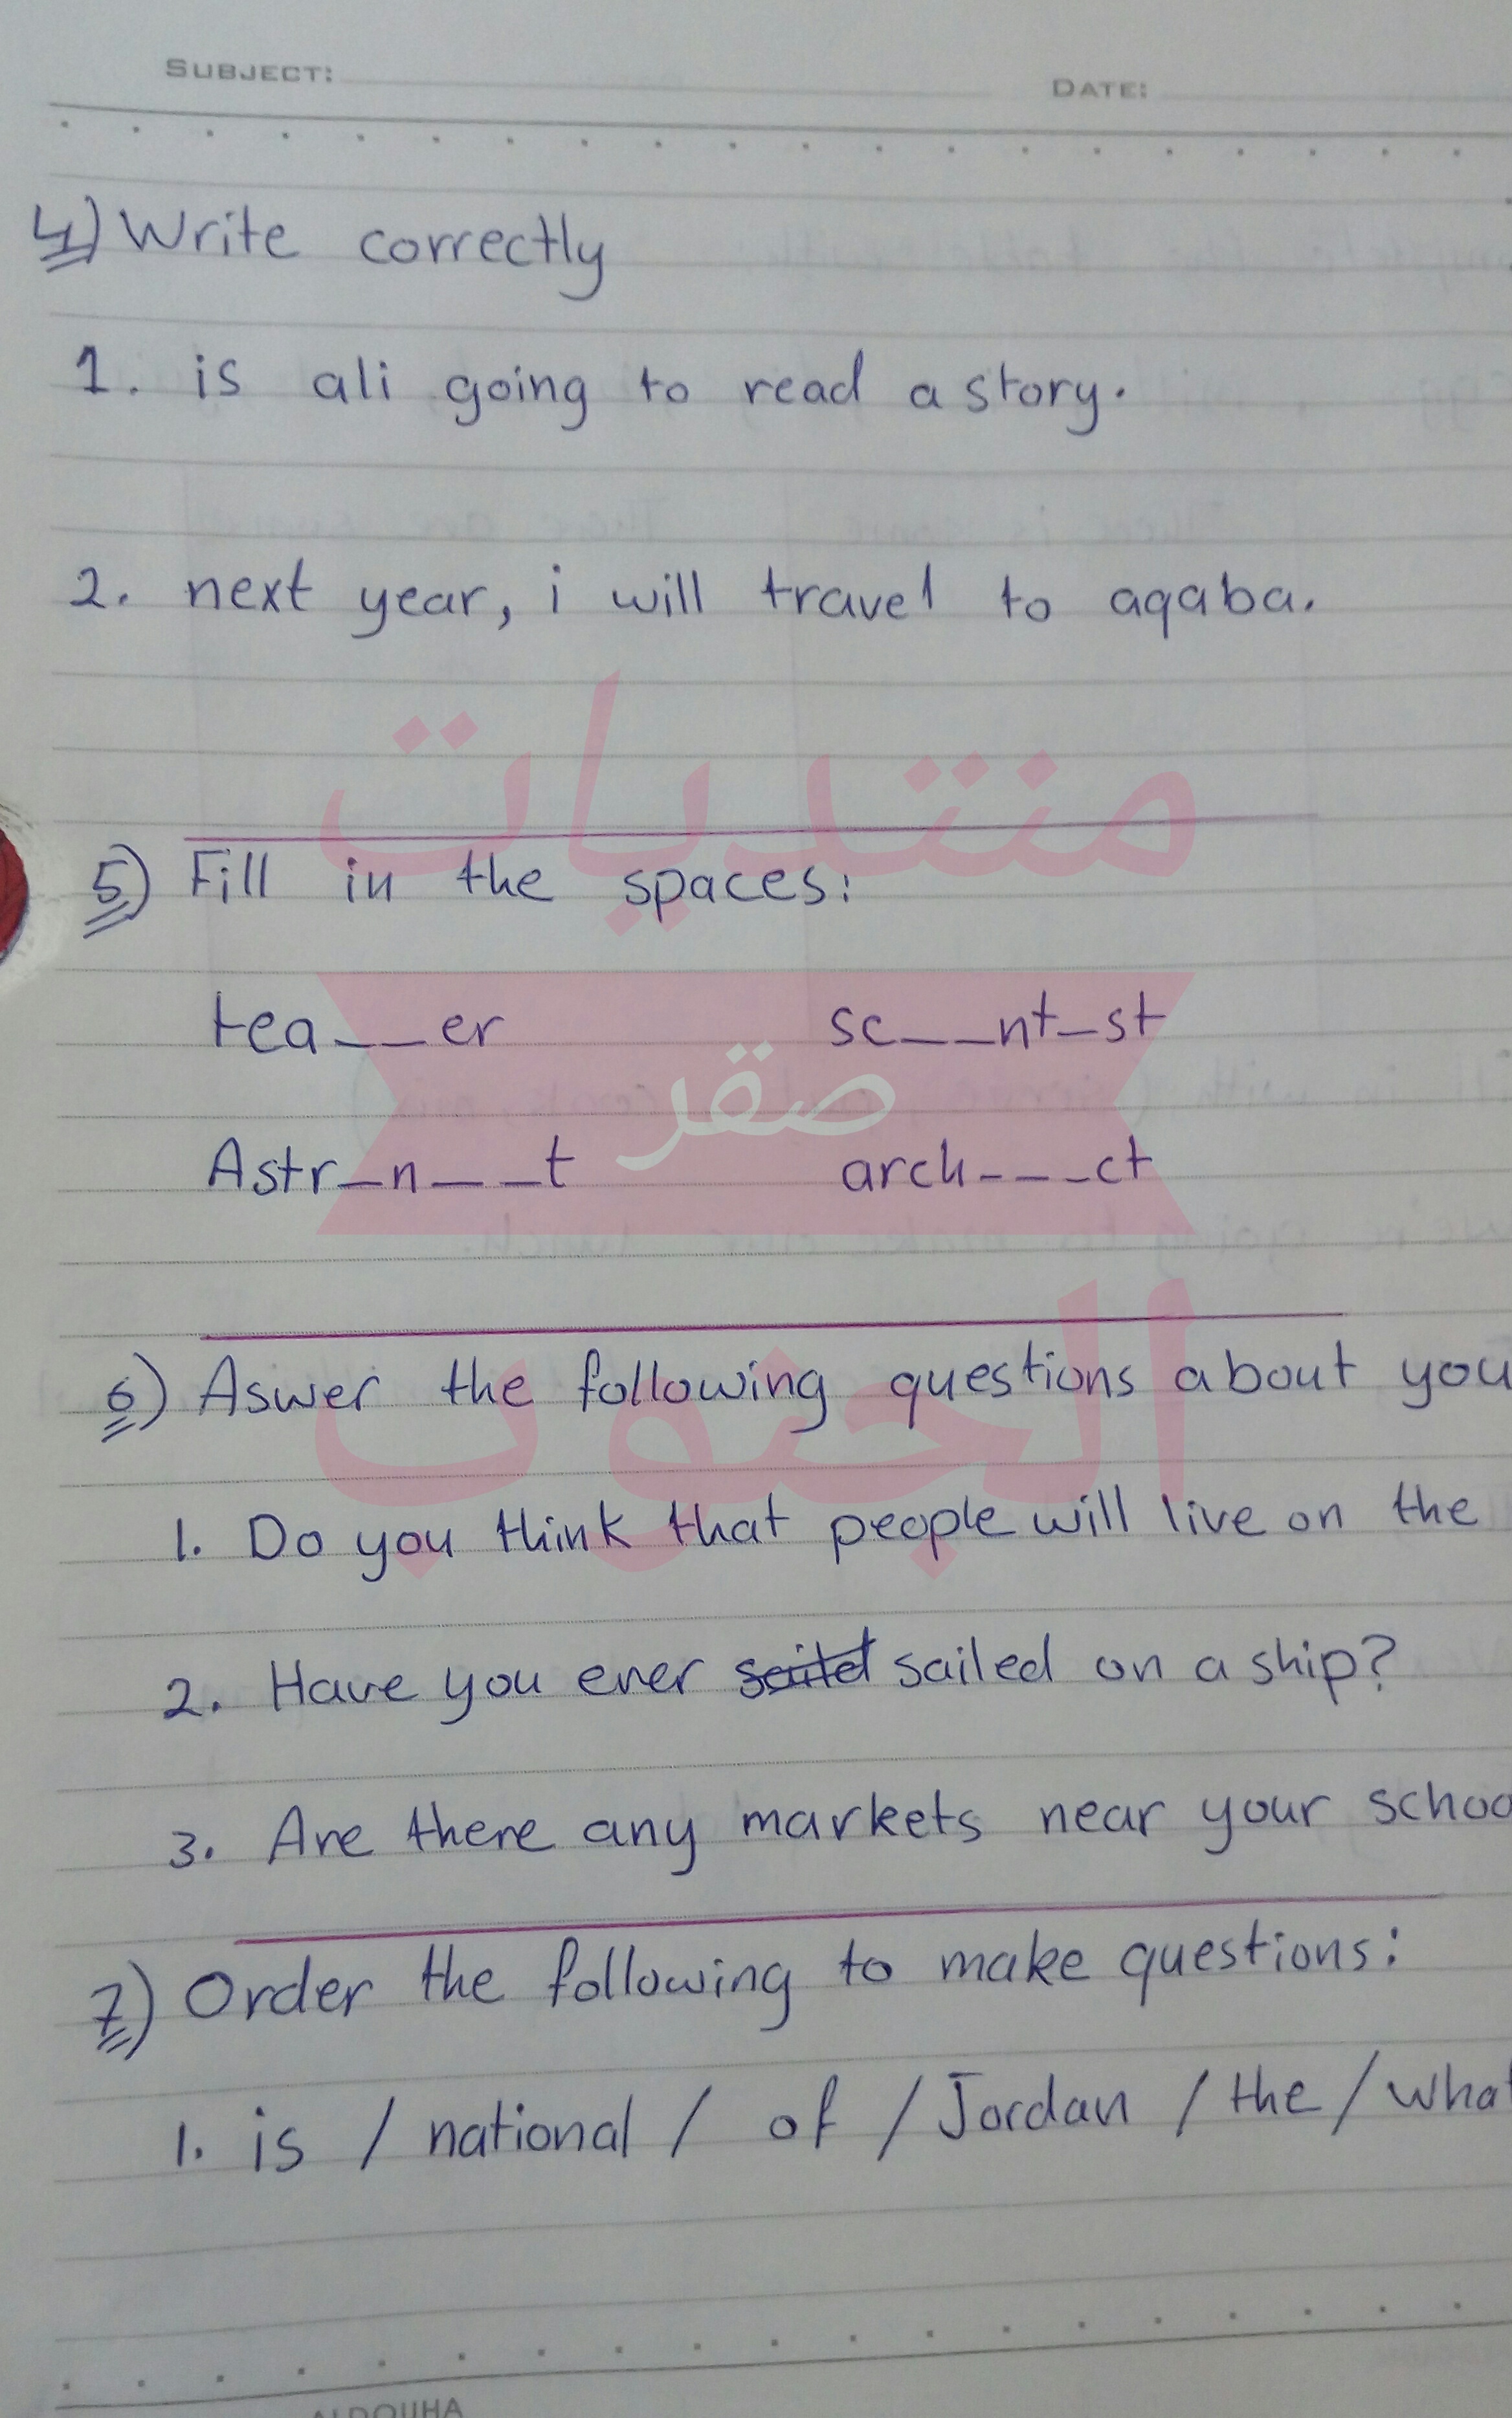 SUBJECT:
DATE:
4) Write correctly
1. is ali going to read a story.
2. next year, i will travel to aqaba.
منتديات
5) Fill in the spaces:
tea__er sc__nt_st
صقر
Astr_n__t arch---ct
الجنوب
6) Aswer the following questions about you
1. Do you think that people will live on the
2. Have you ever sailed on a ship?
3. Are there any markets near your schoo
7) Order the following to make questions:
1. is / national / of / Jordan / the / what
ALDOUHA